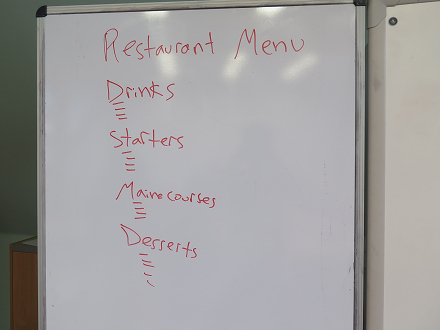 Restaurant Menu
Drinks
Starters
Maine courses
Desserts